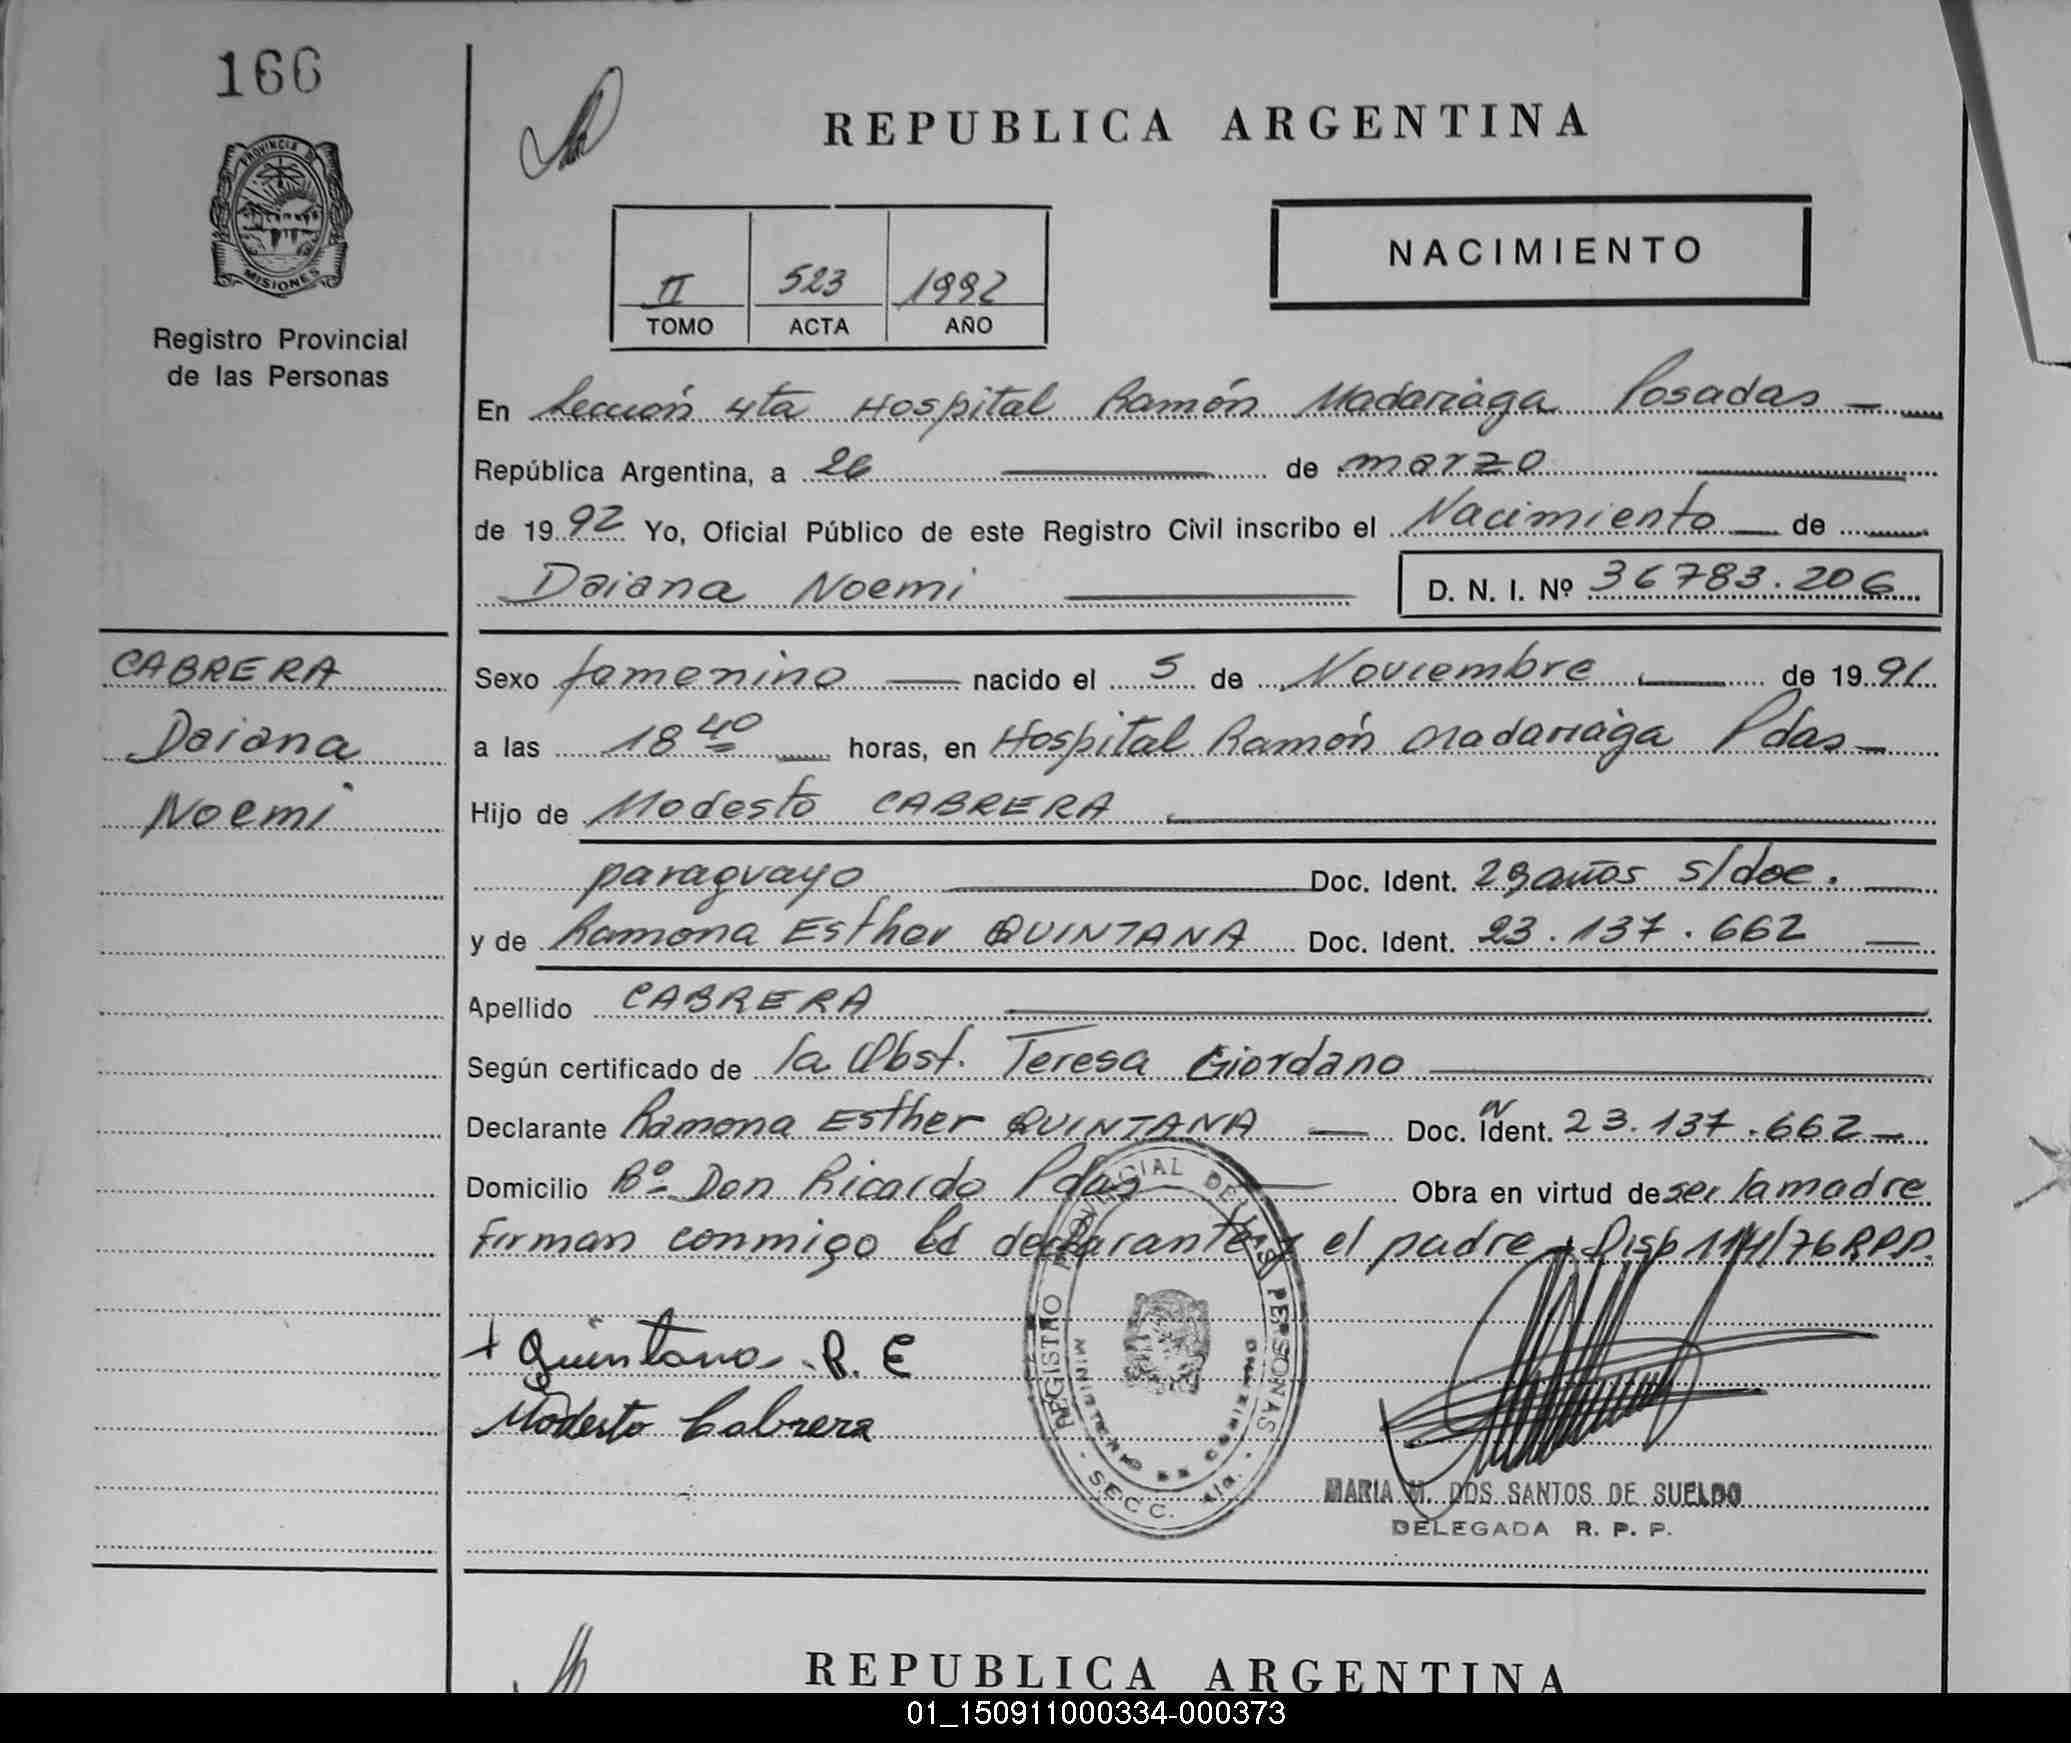 166
PROVINCIA DE
MISIONES
Registro Provincial
de las Personas
REPUBLICA ARGENTINA
NACIMIENTO
II 523 1992
TOMO ACTA AÑO
En Sección 4ta Hospital Ramón Madariaga Posadas
República Argentina, a 26 de marzo
de 1992 Yo, Oficial Público de este Registro Civil inscribo el Nacimiento de
Daiana Noemi D. N. I. Nº 36783.206
CABRERA
Daiana
Noemi
Sexo femenino nacido el 5 de Noviembre de 1991
a las 18 40 horas, en Hospital Ramón Madariaga Pdas
Hijo de Modesto CABRERA
paraguayo Doc. Ident. 29 años s/doc.
y de Ramona Esther QUINTANA Doc. Ident. 23.137.662
Apellido CABRERA
Según certificado de la Obst. Teresa Giordano
Declarante Ramona Esther QUINTANA Doc. Ident. 23.137.662
Domicilio Bº Don Ricardo Pdas Obra en virtud de ser la madre
Firman conmigo la declarante y el padre Disp 114/76 R.P.P.
+ Quintana R. E
Modesto Cabrera
REGISTRO PROVINCIAL DE LAS PERSONAS
MINISTERIO DE GOBIERNO
SECC. 4ta.
MARIA M. DOS SANTOS DE SUELDO
DELEGADA R. P. P.
REPUBLICA ARGENTINA
01_150911000334-000373